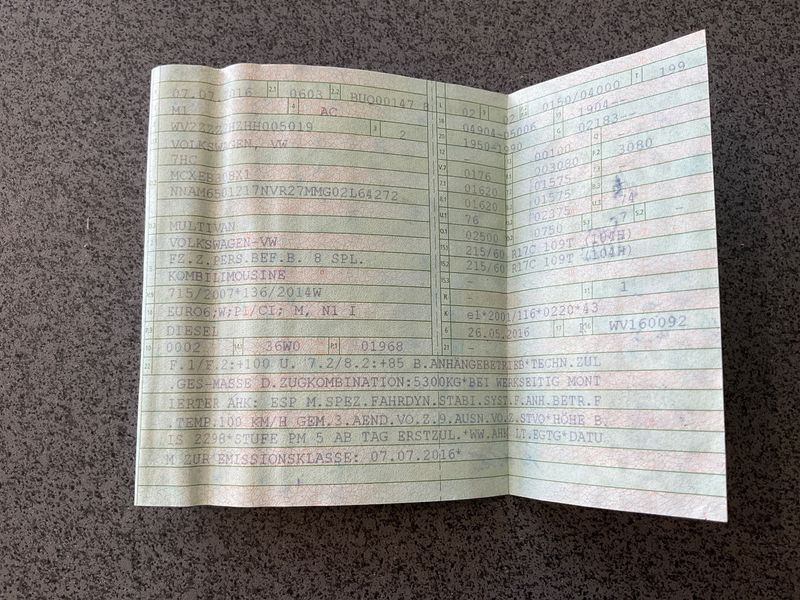 07.07.2016 0603 BUQ00147 8
M1 AC
2
VOLKSWAGEN, VW
7HC
MULTIVAN
VOLKSWAGEN-VW
FZ.Z.PERS.BEF.B. 8 SPL.
KOMBILIMOUSINE
715/2007*136/2014W
EURO6;W;PI/CI; M, N1 I
DIESEL
0002 36W0 01968
02 02 0150/04000 199
04904-05006 1904--
1950-1990 02183--
- 00100
0176 003080 3080
01620 01575
01620 01575
76 02375 74
02500 0750 77 -
215/60 R17C 109T (104H)
215/60 R17C 109T (104H)
-
- 1
e1*2001/116*0220*43
26.05.2016 WV160092
-
F.1/F.2:+100 U. 7.2/8.2:+85 B.ANHÄNGEBETRIEB*TECHN.ZUL
.GES-MASSE D.ZUGKOMBINATION:5300KG*BEI WERKSEITIG MONT
IERTER AHK: ESP M.SPEZ.FAHRDYN.STABI.SYST.F.ANH.BETR.F
.TEMP.100 KM/H GEM.3.AEND.VO.Z.9.AUSN.VO.Z.STVO*HÖHE B.
IS 2298*STUFE PM 5 AB TAG ERSTZUL.*WW.AHK LT.EGTG*DATU
M ZUR EMISSIONSKLASSE: 07.07.2016*